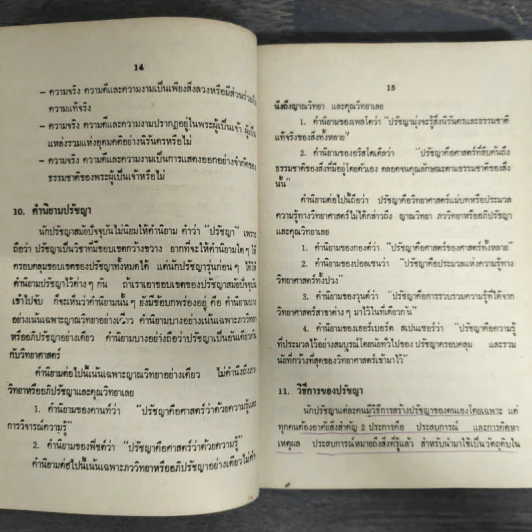 14
– ความจริง ความดีและความงามเป็นเพียงสิ่งลวงหรือมีส่วนร่วมใน
ความแท้จริง
– ความจริง ความดีและความงามปรากฏอยู่ในพระผู้เป็นเจ้า ผู้เป็น
แหล่งรวมแห่งอุดมคติอย่างนิรันดรหรือไม่
– ความจริง ความดีและความงามเป็นการแสดงออกอย่างจำกัดของ
ธรรมชาติของพระผู้เป็นเจ้าหรือไม่
10. คำนิยามปรัชญา
นักปรัชญาสมัยปัจจุบันไม่นิยมให้คำนิยาม คำว่า “ปรัชญา” เพราะ
ถือว่า ปรัชญาเป็นวิชาที่มีขอบเขตกว้างขวาง ยากที่จะให้คำนิยามใดๆ ให้
ครอบคลุมขอบเขตของปรัชญาทั้งหมดได้ แต่นักปรัชญารุ่นก่อนๆ ได้ให้
คำนิยามปรัชญาไว้ต่างๆ กัน ถ้าเราเอาขอบเขตของปรัชญาสมัยปัจจุบัน
เข้าไปจับ ก็จะเห็นว่าคำนิยามนั้นๆ ยังมีข้อบกพร่องอยู่ คือ คำนิยามบาง
อย่างเน้นเฉพาะญาณวิทยาอย่างเดียว คำนิยามบางอย่างเน้นเฉพาะภววิทยา
หรืออภิปรัชญาอย่างเดียว คำนิยามบางอย่างถือว่าปรัชญาเป็นอันเดียวกัน
กับวิทยาศาสตร์
คำนิยามต่อไปนี้เน้นเฉพาะญาณวิทยาอย่างเดียว ไม่คำนึงถึงภว
วิทยาหรืออภิปรัชญาและคุณวิทยาเลย
1. คำนิยามของคานท์ว่า “ปรัชญาคือศาสตร์ว่าด้วยความรู้และ
การวิจารณ์ความรู้”
2. คำนิยามของฟิชต์ว่า “ปรัชญาคือศาสตร์ว่าด้วยความรู้”
คำนิยามต่อไปนี้เน้นเฉพาะภววิทยาหรืออภิปรัชญาอย่างเดียวไม่คำ
15
นึงถึงญาณวิทยา และคุณวิทยาเลย
1. คำนิยามของเพลโตว่า “ปรัชญามุ่งจะรู้สิ่งนิรันดรและธรรมชาติ
แท้จริงของสิ่งทั้งหลาย”
2. คำนิยามของอริสโตเติลว่า “ปรัชญาคือศาสตร์ที่สืบค้นถึง
ธรรมชาติของสิ่งที่มีอยู่โดยตัวเอง ตลอดจนคุณลักษณะตามธรรมชาติของสิ่ง
นั้น”
คำนิยามต่อไปนี้ถือว่า ปรัชญาคือวิทยาศาสตร์แม่บทหรือประมวล
ความรู้ทางวิทยาศาสตร์ไม่ได้กล่าวถึง ญาณวิทยา ภววิทยาหรืออภิปรัชญา
และคุณวิทยาเลย
1. คำนิยามของกองต์ว่า “ปรัชญาคือศาสตร์ของศาสตร์ทั้งหลาย”
2. คำนิยามของปอลเซนว่า “ปรัชญาคือประมวลแห่งความรู้ทาง
วิทยาศาสตร์ทั้งปวง”
3. คำนิยามของวุนด์ว่า “ปรัชญาคือการรวบรวมความรู้ที่ได้จาก
วิทยาศาสตร์สาขาต่างๆ มาไว้ในที่เดียวกัน”
4. คำนิยามของเฮอร์เบอร์ต สเปนเซอร์ว่า “ปรัชญาคือความรู้
ที่ประมวลไว้อย่างสมบูรณ์โดยนัยทั่วไปของ ปรัชญาครอบคลุม และรวม
นัยที่กว้างที่สุดของวิทยาศาสตร์เข้ามาไว้”
11. วิธีการของปรัชญา
นักปรัชญาแต่ละคนมีวิธีการสร้างปรัชญาของตนเองโดยเฉพาะ แต่
ทุกคนต้องอาศัยสิ่งสำคัญ 2 ประการคือ ประสบการณ์ และการคิดหา
เหตุผล ประสบการณ์หมายถึงสิ่งที่รู้แล้ว สำหรับนำมาใช้เป็นวัตถุดิบใน